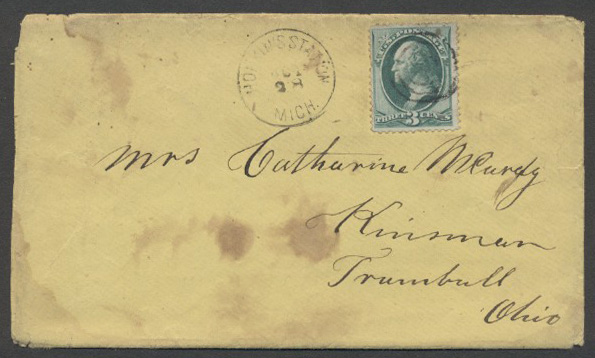 U.S. POSTAGE
THREE 3 CENTS
STATION
MICH.
Mrs Catharine McCurdy
Kinsman
Trumbull
Ohio